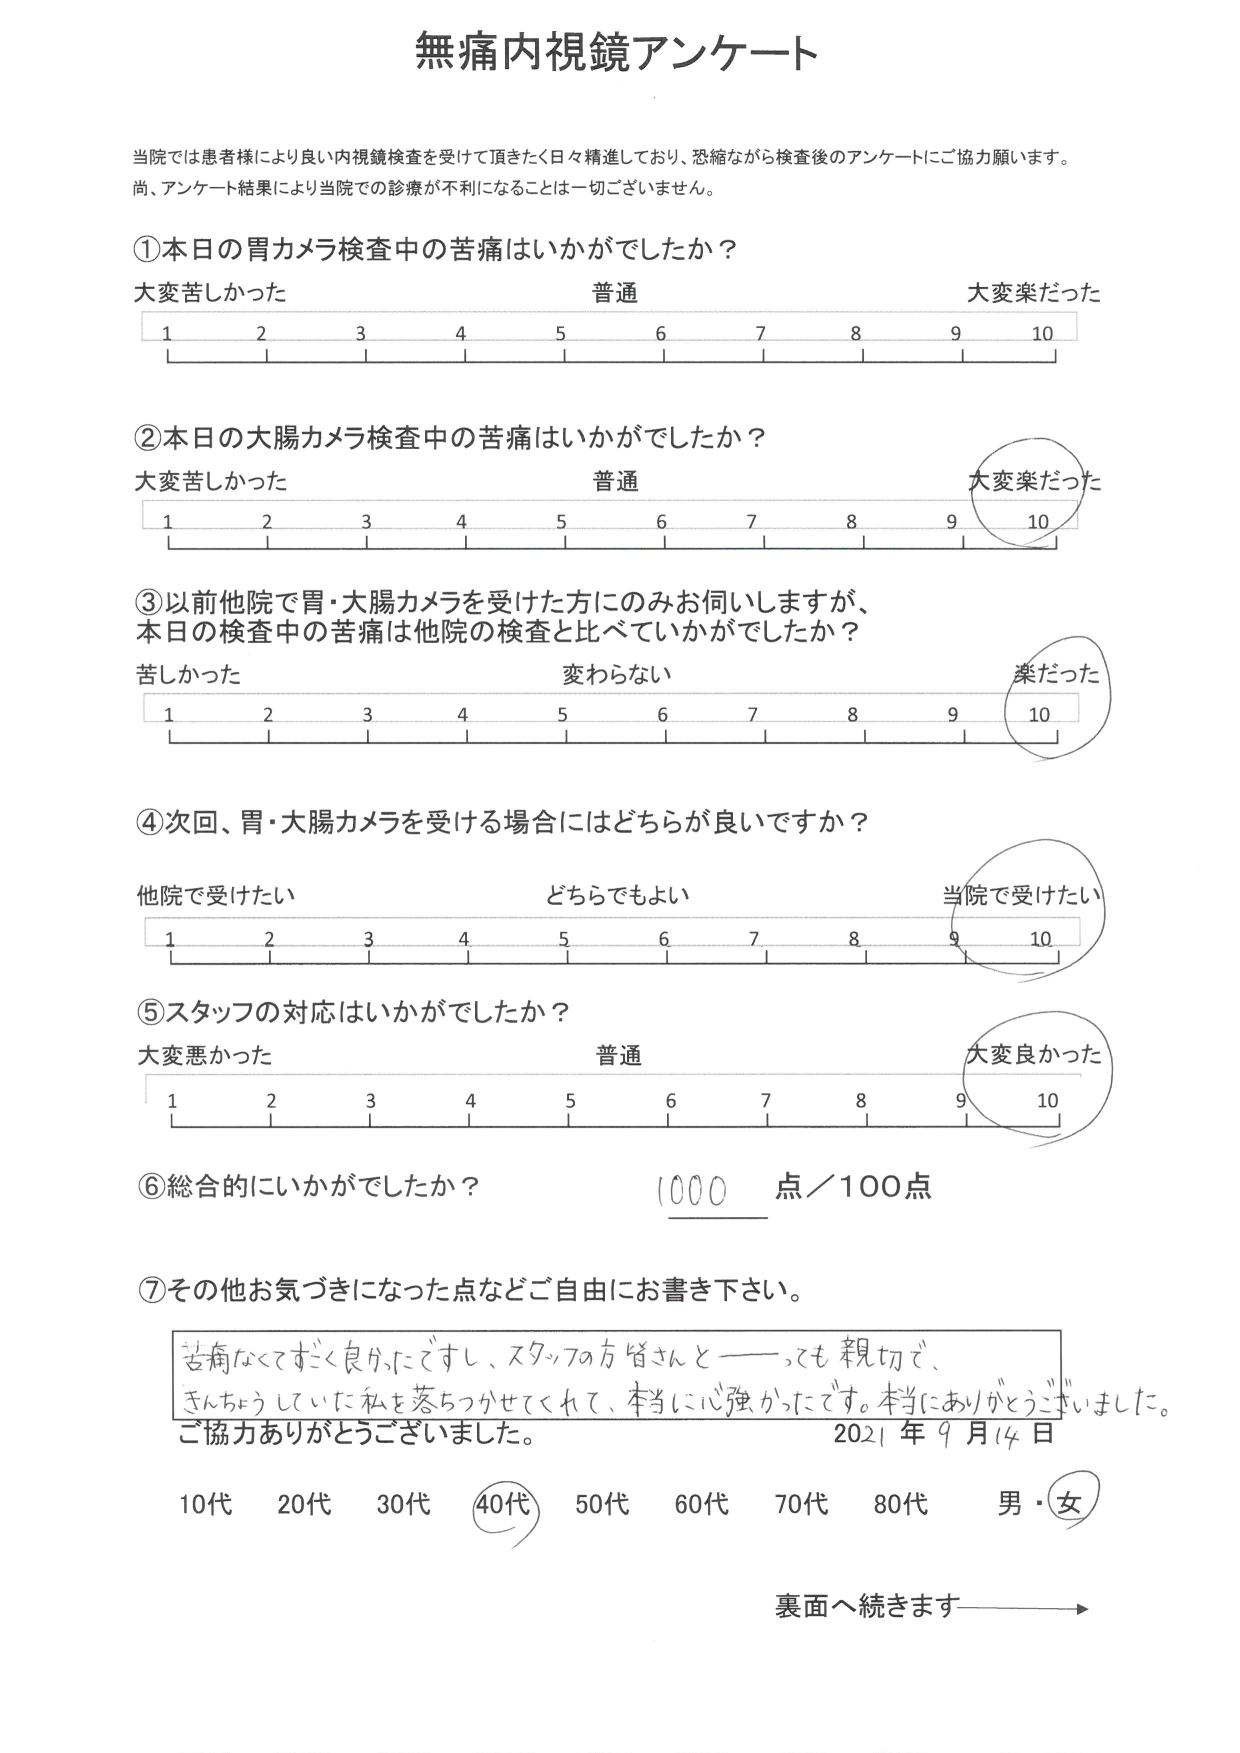 無痛内視鏡アンケート
当院では患者様により良い内視鏡検査を受けて頂きたく日々精進しており、恐縮ながら検査後のアンケートにご協力願います。
尚、アンケート結果により当院での診療が不利になることは一切ございません。
①本日の胃カメラ検査中の苦痛はいかがでしたか？
大変苦しかった 普通 大変楽だった
1 2 3 4 5 6 7 8 9 10
②本日の大腸カメラ検査中の苦痛はいかがでしたか？
大変苦しかった 普通 大変楽だった
1 2 3 4 5 6 7 8 9 10
③以前他院で胃・大腸カメラを受けた方にのみお伺いしますが、
本日の検査中の苦痛は他院の検査と比べていかがでしたか？
苦しかった 変わらない 楽だった
1 2 3 4 5 6 7 8 9 10
④次回、胃・大腸カメラを受ける場合にはどちらが良いですか？
他院で受けたい どちらでもよい 当院で受けたい
1 2 3 4 5 6 7 8 9 10
⑤スタッフの対応はいかがでしたか？
大変悪かった 普通 大変良かった
1 2 3 4 5 6 7 8 9 10
⑥総合的にいかがでしたか？ 1000 点／100点
⑦その他お気づきになった点などご自由にお書き下さい。
苦痛なくてすごく良かったですし、スタッフの方皆さんと――っても親切で、
きんちょうしていた私を落ちつかせてくれて、本当に心強かったです。本当にありがとうございました。
ご協力ありがとうございました。 2021 年 9 月 14 日
10代 20代 30代 40代 50代 60代 70代 80代 男・女
裏面へ続きます